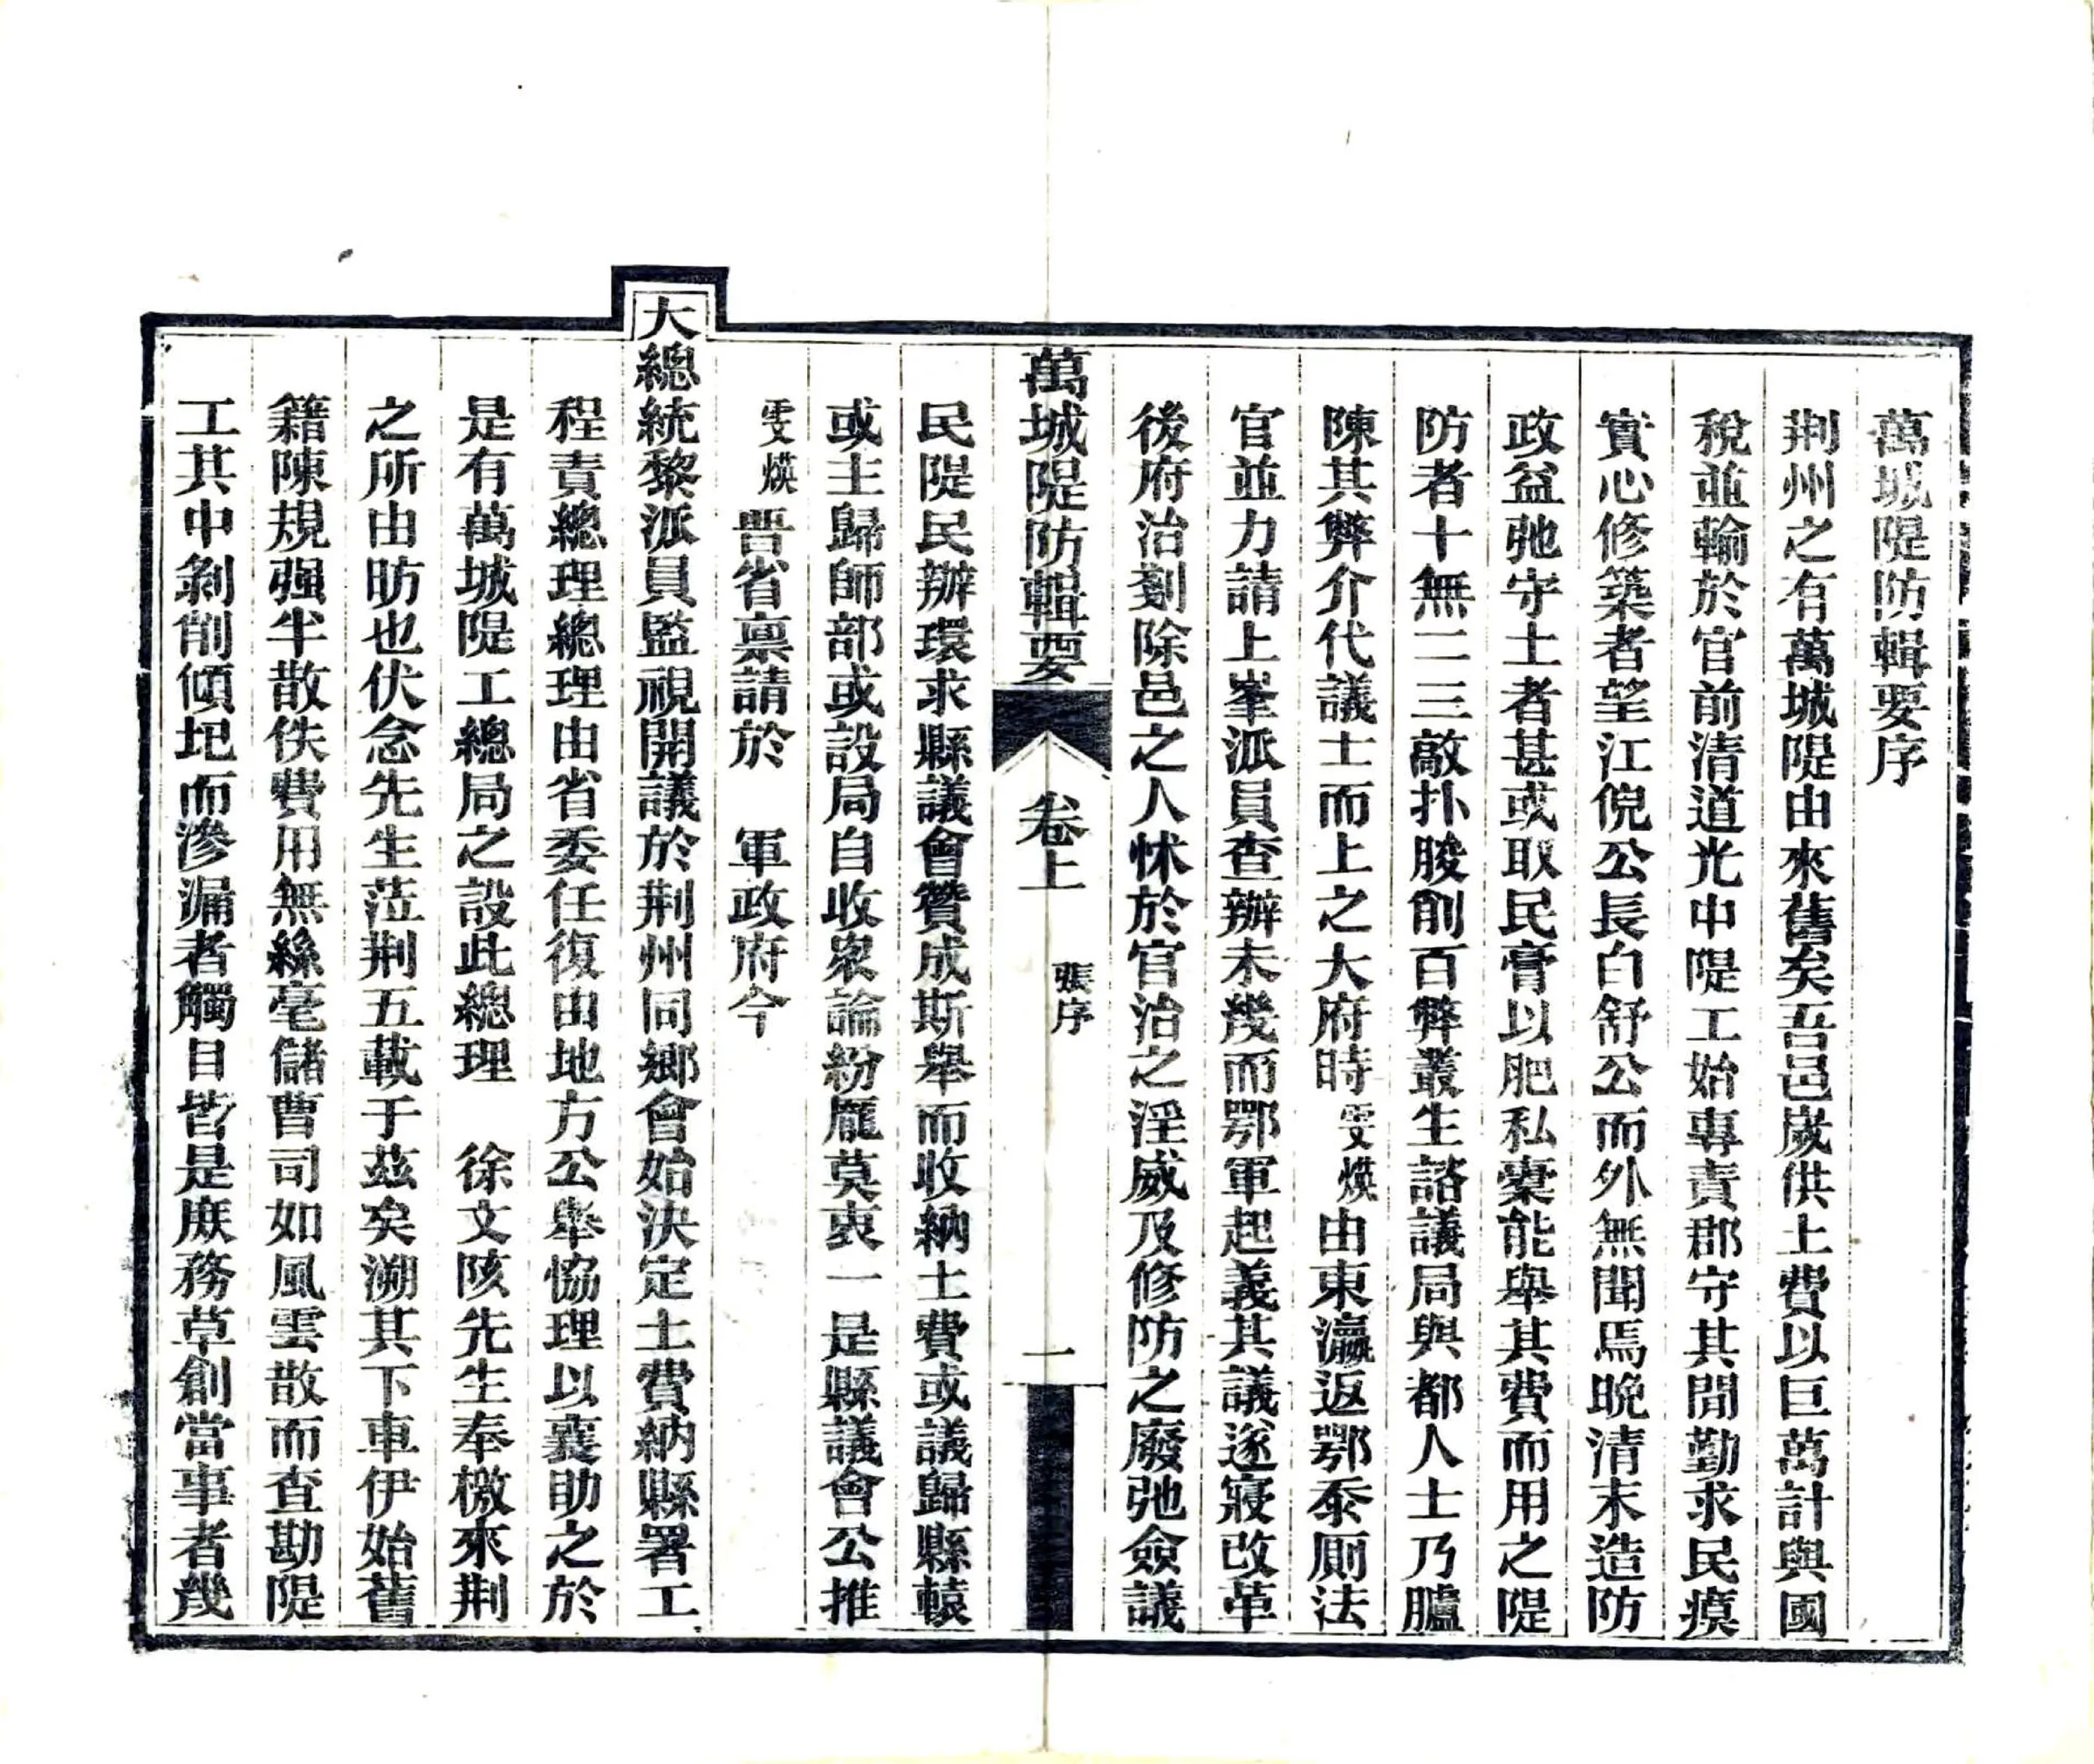 萬城隄防輯要序
荆州之有萬城隄由來舊矣吾邑歲供土費以巨萬計與國
稅並輸於官前清道光中隄工始專責郡守其間勤求民瘼
實心修築者望江倪公長白舒公而外無聞焉晚清末造防
政益弛守土者甚或取民膏以肥私橐能舉其費而用之隄
防者十無二三敲扑朘削百弊叢生諮議局與都人士乃臚
陳其弊介代議士而上之大府時雯煐由東瀛返鄂忝厠法
官並力請上峯派員查辦未幾而鄂軍起義其議遂寢改革
後府治剗除邑之人怵於官治之淫威及修防之廢弛僉議
萬城隄防輯要 卷上 張序 一
民隄民辦環求縣議會贊成斯舉而收納土費或議歸縣轅
或主歸師部或設局自收衆論紛龐莫衷一是縣議會公推
雯煐晋省稟請於 軍政府今
大總統黎派員監視開議於荆州同鄉會始決定土費納縣署工
程責總理總理由省委任復由地方公舉恊理以襄助之於
是有萬城隄工總局之設此總理 徐文陔先生奉檄來荆
之所由昉也伏念先生蒞荆五載于茲矣溯其下車伊始舊
籍陳規强半散佚費用無絲毫儲曹司如風雲散而查勘隄
工其中剝削傾圯而滲漏者觸目皆是庶務草創當事者幾